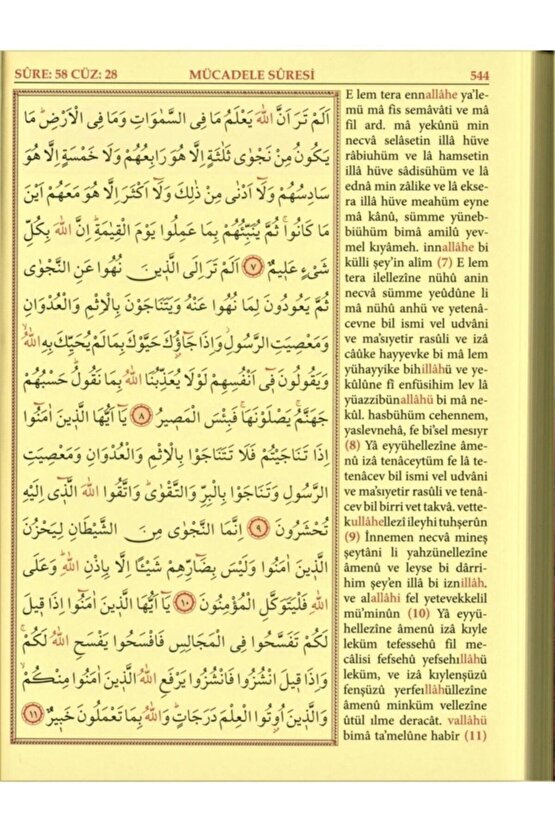 SÛRE: 58 CÜZ: 28 MÜCADELE SÛRESİ 544
اَلَمْ تَرَ اَنَّ اللّٰهَ يَعْلَمُ مَا فِى السَّمٰوَاتِ وَمَا فِى الْاَرْضِۜ مَا
يَكُونُ مِنْ نَجْوٰى ثَلٰثَةٍ اِلَّا هُوَ رَابِعُهُمْ وَلَا خَمْسَةٍ اِلَّا هُوَ
سَادِسُهُمْ وَلَٓا اَدْنٰى مِنْ ذٰلِكَ وَلَٓا اَكْثَرَ اِلَّا هُوَ مَعَهُمْ اَيْنَ
مَا كَانُواۚ ثُمَّ يُنَبِّئُهُمْ بِمَا عَمِلُوا يَوْمَ الْقِيٰمَةِۜ اِنَّ اللّٰهَ بِكُلِّ
شَىْءٍ عَلِيمٌ ﴿٧﴾ اَلَمْ تَرَ اِلَى الَّذِينَ نُهُوا عَنِ النَّجْوٰى
ثُمَّ يَعُودُونَ لِمَا نُهُوا عَنْهُ وَيَتَنَاجَوْنَ بِالْاِثْمِ وَالْعُدْوَانِ
وَمَعْصِيَتِ الرَّسُولِۘ وَاِذَا جَٓاؤُ۫كَ حَيَّوْكَ بِمَا لَمْ يُحَيِّكَ بِهِ اللّٰهُۙ
وَيَقُولُونَ فِٓى اَنْفُسِهِمْ لَوْلَا يُعَذِّبُنَا اللّٰهُ بِمَا نَقُولُۜ حَسْبُهُمْ
جَهَنَّمُۚ يَصْلَوْنَهَاۚ فَبِئْسَ الْمَصِيرُ ﴿٨﴾ يَٓا اَيُّهَا الَّذِينَ اٰمَنُٓوا
اِذَا تَنَاجَيْتُمْ فَلَا تَتَنَاجَوْا بِالْاِثْمِ وَالْعُدْوَانِ وَمَعْصِيَتِ
الرَّسُولِ وَتَنَاجَوْا بِالْبِرِّ وَالتَّقْوٰىۜ وَاتَّقُوا اللّٰهَ الَّذِٓى اِلَيْهِ
تُحْشَرُونَ ﴿٩﴾ اِنَّمَا النَّجْوٰى مِنَ الشَّيْطَانِ لِيَحْزُنَ
الَّذِينَ اٰمَنُوا وَلَيْسَ بِضَٓارِّهِمْ شَيْئًا اِلَّا بِاِذْنِ اللّٰهِۜ وَعَلَى
اللّٰهِ فَلْيَتَوَكَّلِ الْمُؤْمِنُونَ ﴿١٠﴾ يَٓا اَيُّهَا الَّذِينَ اٰمَنُٓوا اِذَا قِيلَ
لَكُمْ تَفَسَّحُوا فِى الْمَجَالِسِ فَافْسَحُوا يَفْسَحِ اللّٰهُ لَكُمْۚ
وَاِذَا قِيلَ انْشُزُوا فَانْشُزُوا يَرْفَعِ اللّٰهُ الَّذِينَ اٰمَنُوا مِنْكُمْۙ
وَالَّذِينَ اُو۫تُوا الْعِلْمَ دَرَجَاتٍۜ وَاللّٰهُ بِمَا تَعْمَلُونَ خَبِيرٌ ﴿١١﴾
E lem tera ennallâhe ya'le-
mü mâ fis semâvâti ve mâ
fil ard. mâ yekûnü min
necvâ selâsetin illâ hüve
râbiuhüm ve lâ hamsetin
illâ hüve sâdisühüm ve lâ
ednâ min zâlike ve lâ ekse-
ra illâ hüve meahüm eyne
mâ kânû, sümme yüneb-
biühüm bimâ amilû yev-
mel kıyâmeh. innallâhe bi
külli şey'in alîm (7) E lem
tera ilellezîne nühû anin
necvâ sümme yeûdûne li
mâ nühû anhü ve yetenâ-
cevne bil ismi vel udvâni
ve ma'sıyetir rasûli ve izâ
câûke hayyevke bi mâ lem
yühayyike bihillâhü ve ye-
kûlûne fî enfüsihim lev lâ
yüazzibünallâhü bi mâ ne-
kûl. hasbühüm cehennem,
yaslevnehâ, fe bi'sel mesıyr
(8) Yâ eyyühellezîne âme-
nû izâ tenâceytüm fe lâ te-
tenâcev bil ismi vel udvâni
ve ma'sıyetir rasûli ve tenâ-
cev bil birri vet takvâ. vette-
kullâhellezî ileyhi tuhşerûn
(9) İnnemen necvâ mineş
şeytâni li yahzünellezîne
âmenû ve leyse bi dârri-
him şey'en illâ bi iznillâh.
ve alallâhi fel yetevekkelil
mü'minûn (10) Yâ eyyü-
hellezîne âmenû izâ kıyle
leküm tefessehû fil me-
câlisi fefsehû yefsehıllâhü
leküm, ve izâ kıylenşüzû
fenşüzû yerfeıllâhüllezîne
âmenû minküm vellezîne
ûtül ılme deracât. vallâhü
bimâ ta'melûne habîr (11)